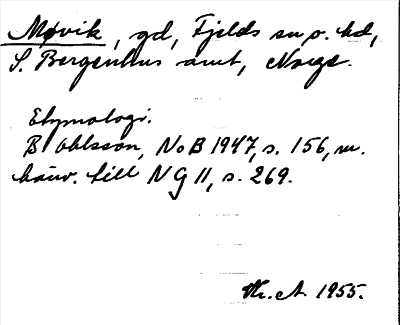 Møvik, gd, Fjelds sn o. hd,
S. Bergenhus amt, Norge.
Etymologi.
B Ohlsson, NoB 1947, s. 156, m.
hänv. till NG 11, s. 269.
1955.